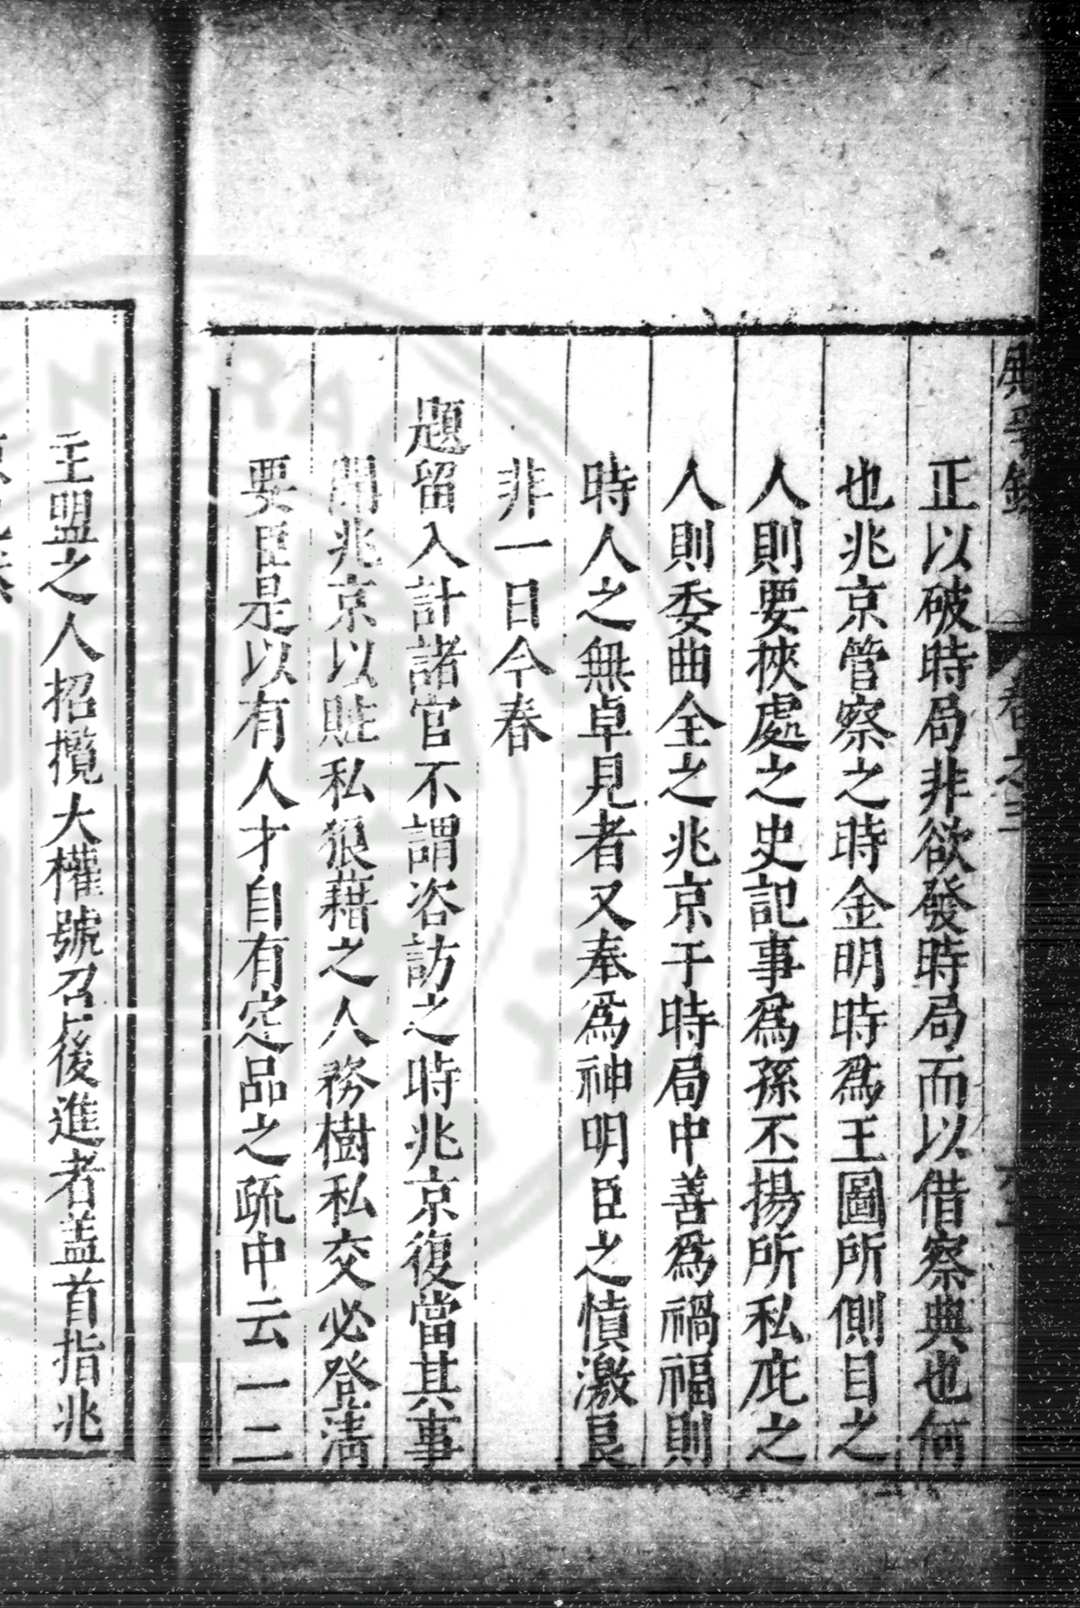 正以破時局非欲發時局而以借察典也何
也兆京管察之時金明時爲王圖所側目之
人則要挾處之史記事爲孫丕揚所私庇之
人則委曲全之兆京于時局中善爲禍福則
時人之無卓見者又奉爲神明臣之憤激良
非一日今春
題留入計諸官不謂咨訪之時兆京復當其事
聞兆京以賍私狼藉之人務樹私交必登淸
要臣是以有人才自有定品之疏中云一二
主盟之人招攬大權號召後進者盖首指兆